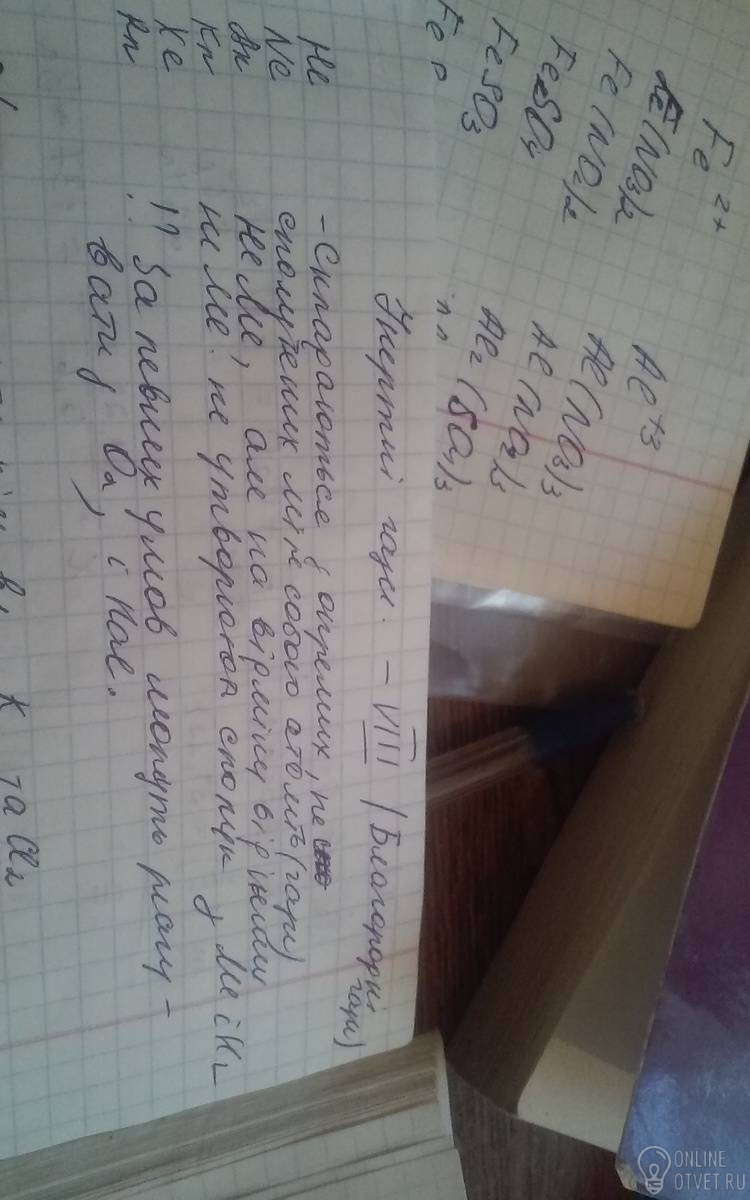 Fe 2+ Al +3
Fe(NO3)2 Al(NO3)3
Fe(NO2)2 Al(NO2)3
FeSO4 Al2(SO4)3
FeSO3
Інертні гази. – VIII (Благородні гази)
He – Складаються з окремих, не
Ne сполучених між собою атомів (гази)
Ar неМе, але на відміну від інших
Kr неМе не утворюють сполук з Ме і H2
Xe !! За певних умов можуть реагу-
Rn вати з O2, і Hal.
K та Cl2
ONLINE
OTVET.RU